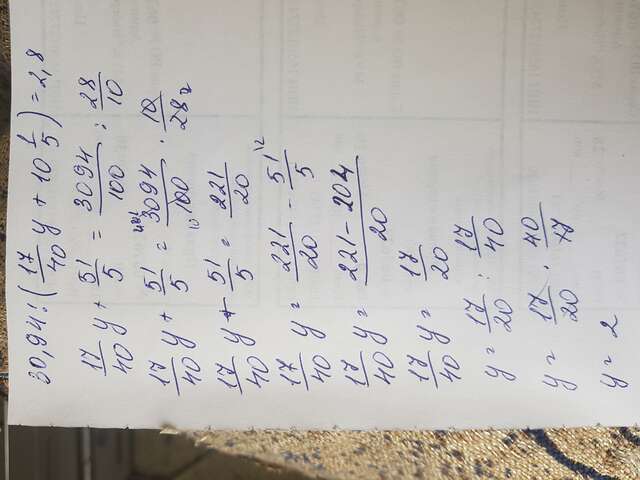 30,94 : (17/40 y + 10 1/5) = 2,8
17/40 y + 51/5 = 3094/100 : 28/10
17/40 y + 51/5 = 3094/100 · 10/28
17/40 y + 51/5 = 221/20
17/40 y = 221/20 - 51/5
17/40 y = 221-204/20
17/40 y = 17/20
y = 17/20 : 17/40
y = 17/20 · 40/17
y = 2